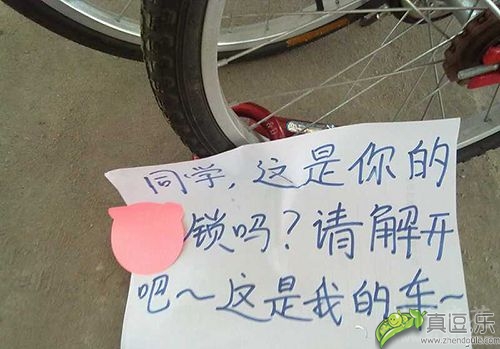 同学,这是你的
锁吗?请解开
吧~这是我的车~
真逗乐
www.zhendoule.com